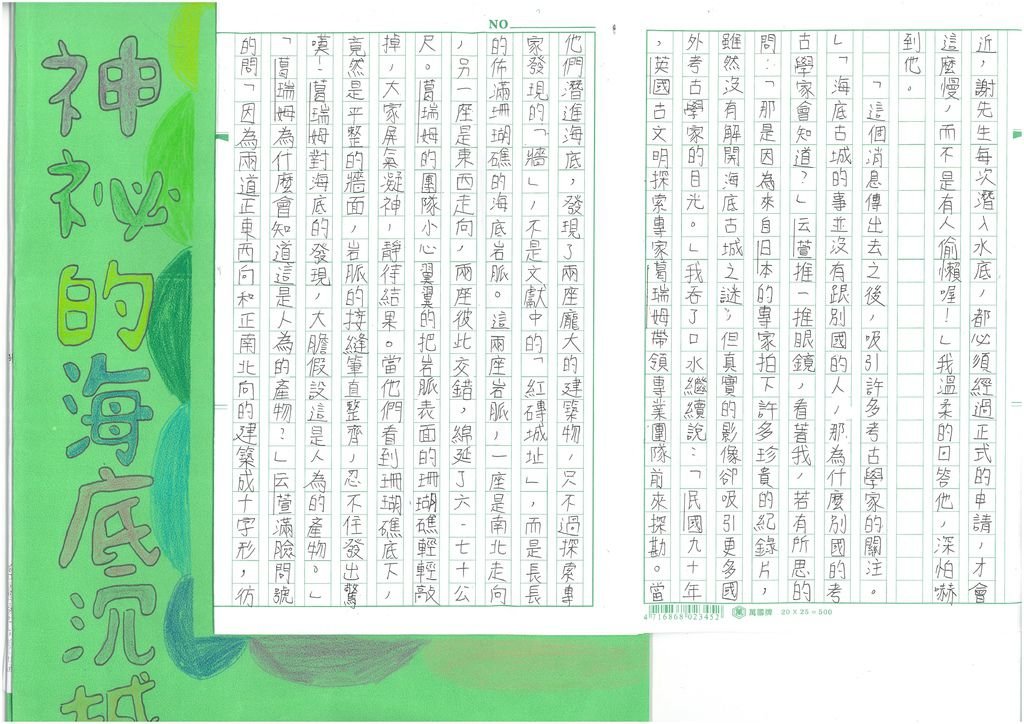 神祕的海底沉城
NO
近，謝先生每次潛入水底，都必須經過正式的申請，才會
這麼慢，而不是有人偷懶喔！」我溫柔的回答他，深怕嚇
到他。
「這個消息傳出去之後，吸引許多考古學家的關注。
」「海底古城的事並沒有跟別國的人，那為什麼別國的考
古學家會知道？」云萱推一推眼鏡，看著我，若有所思的
問：「那是因為來自日本的專家拍下許多珍貴的紀錄片，
雖然沒有解開海底古城之謎，但真實的影像卻吸引更多國
外考古學家的目光。」我吞了口水繼續說：「民國九十年
，英國古文明探索專家葛瑞姆帶領專業團隊前來探勘。當
4716868023452
萬國牌 20×25=500
他們潛進海底，發現了兩座龐大的建築物，只不過探索專
家發現的「牆」，不是文獻中的「紅磚城址」，而是長長
的佈滿珊瑚礁的海底岩脈。這兩座岩脈，一座是南北走向
，另一座是東西走向，兩座彼此交錯，綿延了六、七十公
尺。葛瑞姆的團隊小心翼翼的把岩脈表面的珊瑚礁輕輕敲
掉，大家屏氣凝神，靜待結果。當他們看到珊瑚礁底下，
竟然是平整的牆面，岩脈的接縫筆直整齊，忍不住發出驚
嘆！葛瑞姆對海底的發現，大膽假設這是人為的產物。」
「葛瑞姆為什麼會知道這是人為的產物？」云萱滿臉問號
的問「因為兩道正東西向和正南北向的建築成十字形，彷